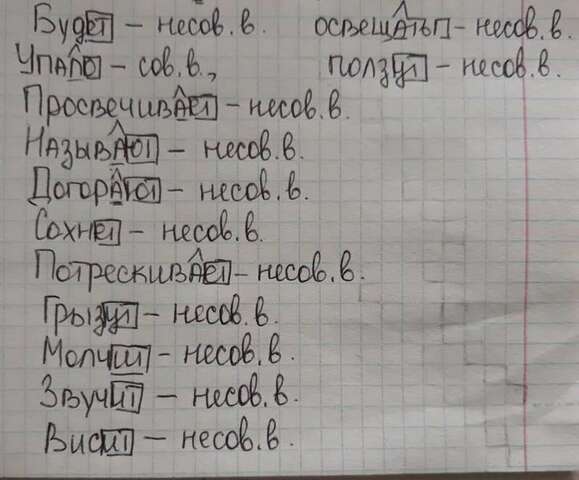 Будет – несов. в. освещАтьп – несов. в.
Упало – сов. в., ползут – несов. в.
ПросвечивАет – несов. в.
НазывАют – несов. в.
ДогорАют – несов. в.
Сохнет – несов. в.
ПотрескивАет – несов. в.
Грызут – несов. в.
Молчит – несов. в.
Звучит – несов. в.
Висит – несов. в.